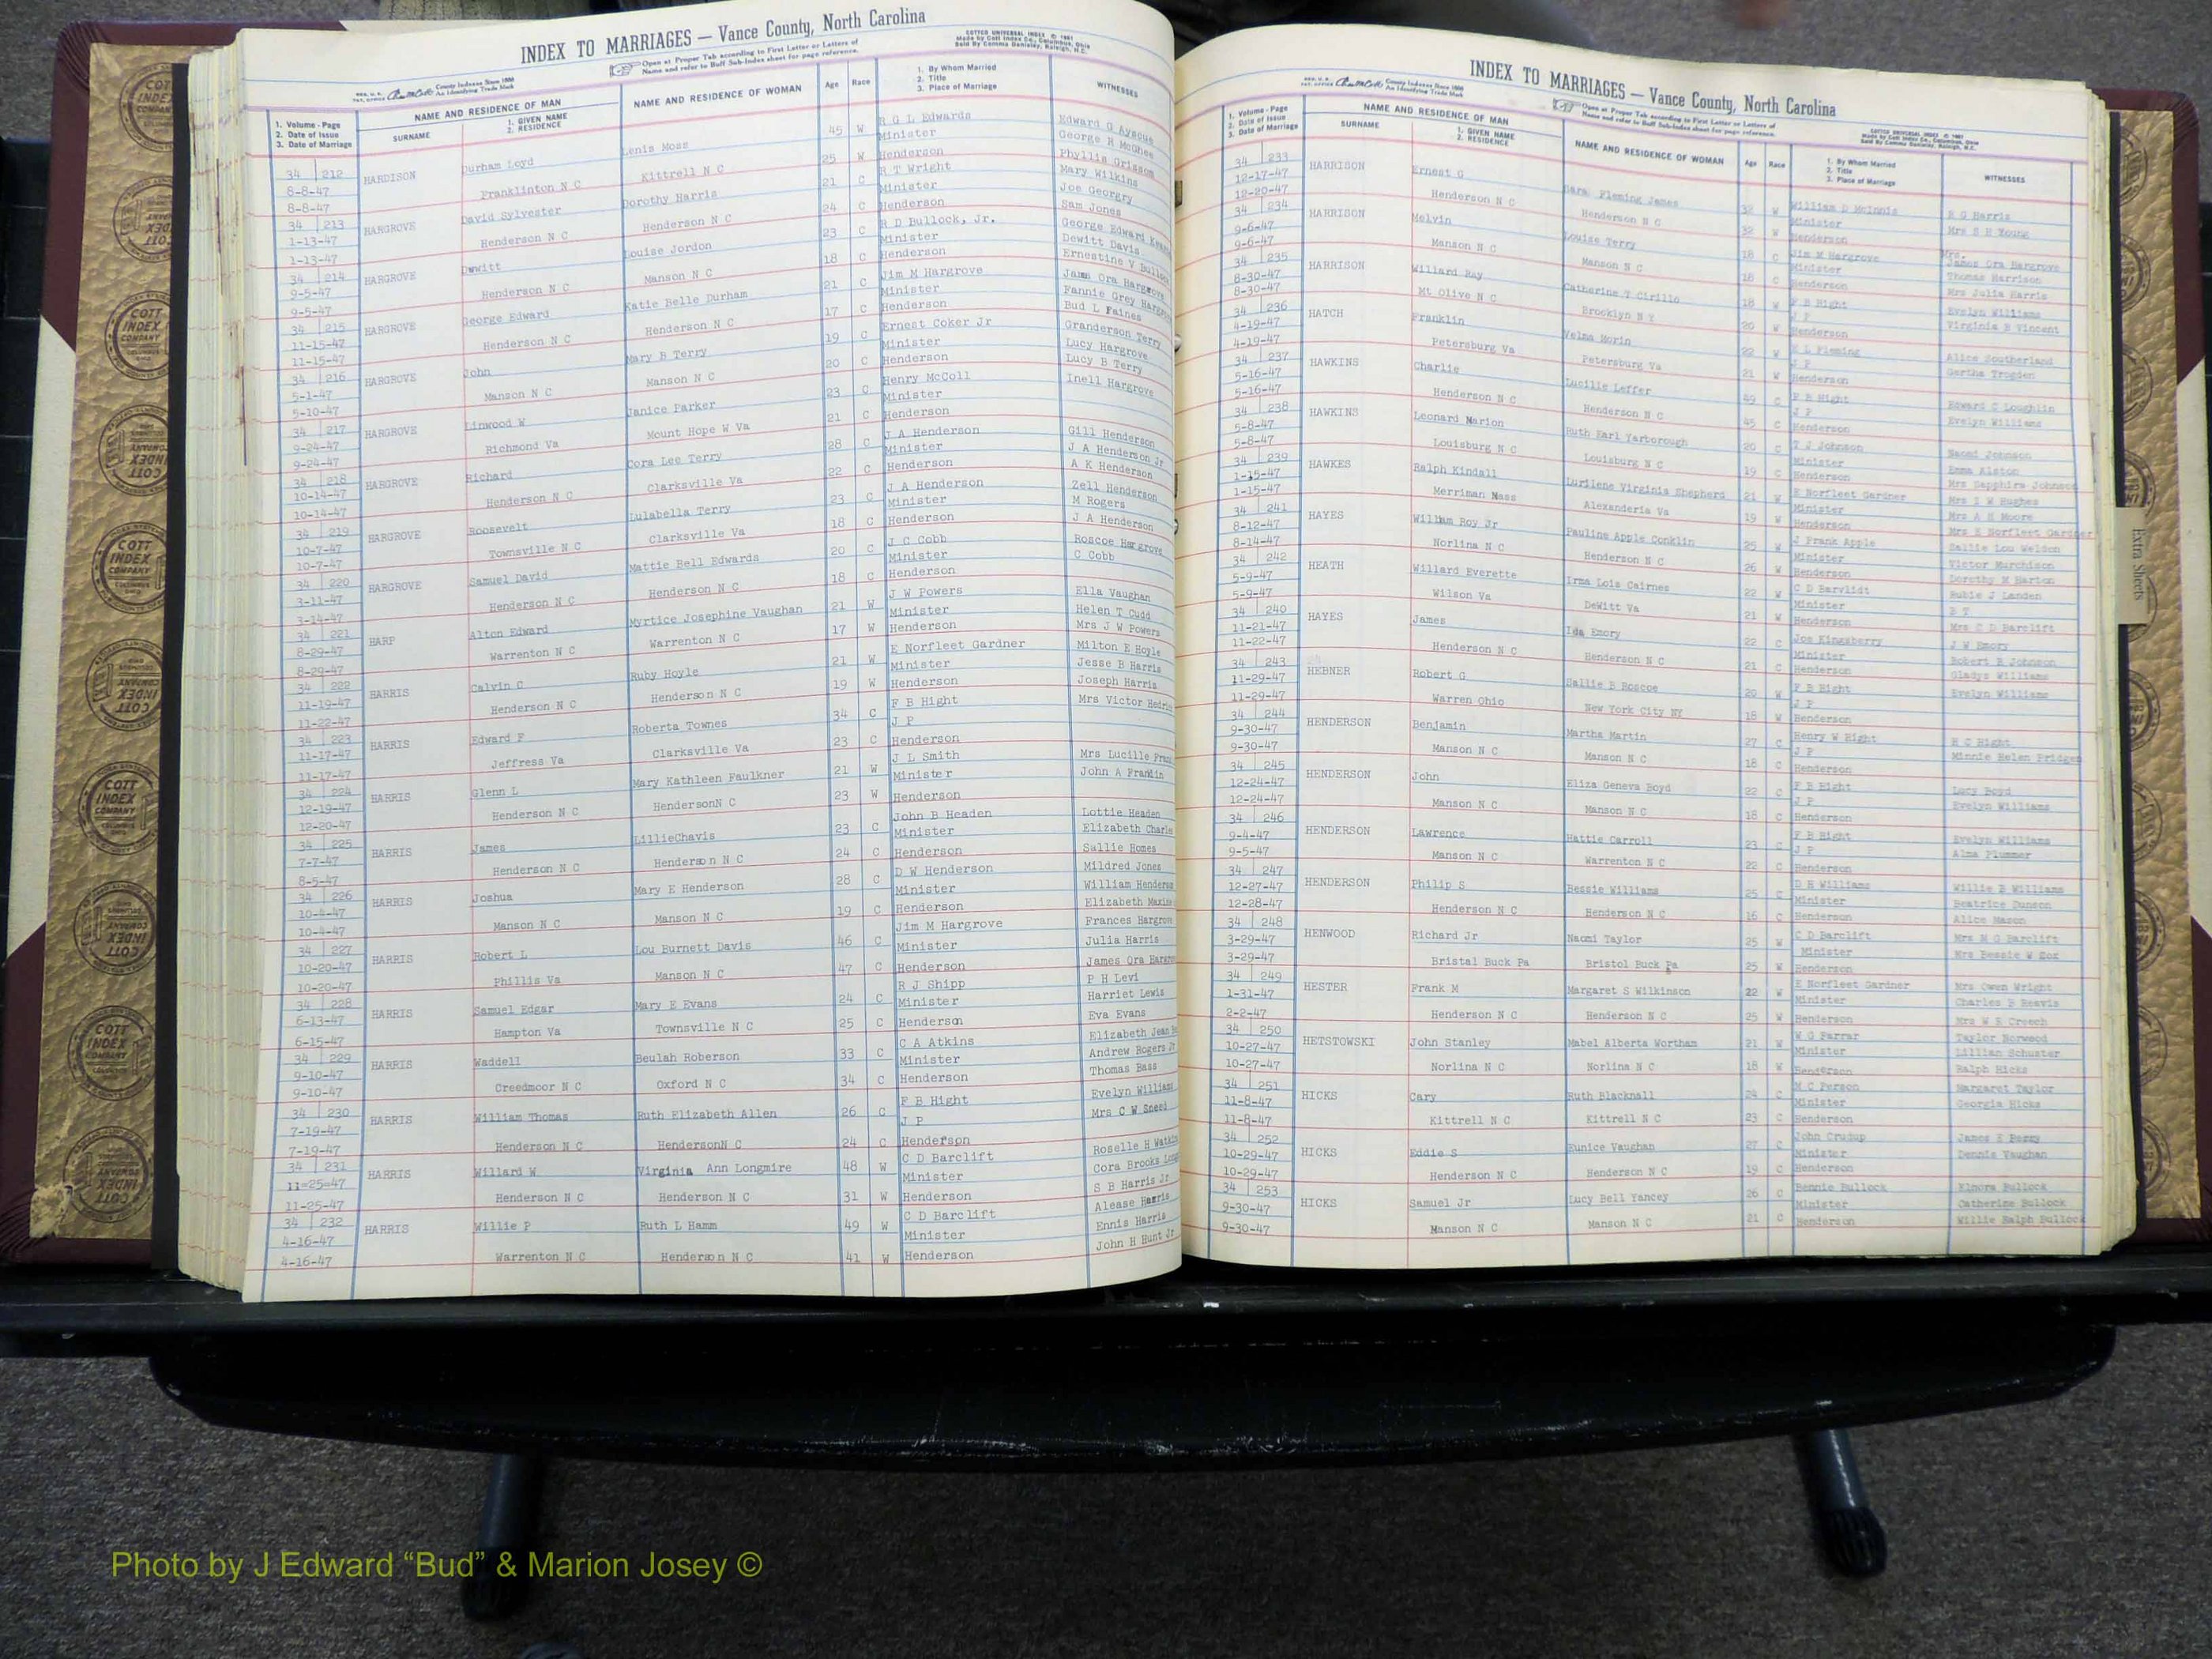 INDEX TO MARRIAGES — Vance County, North Carolina
Open at Proper Tab according to First Letter or Letters of
Name and refer to Buff Sub-Index sheet for page reference.
COTTCO UNIVERSAL INDEX © 1961
Made by Cott Index Co., Columbus, Ohio
County Indexes Since 1888
An Identifying Trade Mark
1. Volume - Page
2. Date of Issue
3. Date of Marriage
NAME AND RESIDENCE OF MAN
SURNAME
1. GIVEN NAME
2. RESIDENCE
NAME AND RESIDENCE OF WOMAN
Age
Race
1. By Whom Married
2. Title
3. Place of Marriage
WITNESSES
34 212 HARDISON Durham Loyd Lenis Moss 45 W R G L Edwards Edward G Ayscue
8-8-47 Franklinton N C Kittrell N C 25 W Minister George H McGhee
8-8-47 Henderson Phyllis Grissom
34 213 HARGROVE David Sylvester Dorothy Harris 21 C R T Wright Mary Wilkins
1-13-47 Henderson N C Henderson N C 24 C Minister Joe Georgry
1-13-47 Henderson Sam Jones
34 214 HARGROVE Dewitt Louise Jordon 23 C R D Bullock, Jr. George Edward
9-5-47 Henderson N C Manson N C 18 C Minister Dewitt Davis
9-5-47 Henderson Ernestine V
34 215 HARGROVE George Edward Katie Belle Durham 21 C Jim M Hargrove
11-15-47 Henderson N C Henderson N C 17 C Minister Fannie Grey
11-15-47 Henderson Bud L Faines
34 216 HARGROVE John Mary B Terry 19 C Ernest Coker Jr Granderson Terry
5-1-47 Manson N C Manson N C 20 C Minister Lucy Hargrove
5-10-47 Henderson Lucy B Terry
34 217 HARGROVE Linwood W Janice Parker 23 C Henry McColl Inell Hargrove
9-24-47 Richmond Va Mount Hope W Va 21 C Minister
9-24-47 Henderson
34 218 HARGROVE Richard Cora Lee Terry 28 C J A Henderson Gill Henderson
10-14-47 Henderson N C Clarksville Va 22 C Minister J A Henderson Jr
10-14-47 Henderson A K Henderson
34 219 HARGROVE Roosevelt Lulabella Terry 23 C J A Henderson Zell Henderson
10-7-47 Townsville N C Clarksville Va 18 C Minister M Rogers
10-7-47 Henderson J A Henderson
34 220 HARGROVE Samuel David Mattie Bell Edwards 20 C J C Cobb Roscoe Hargrove
3-11-47 Henderson N C Henderson N C 18 C Minister C Cobb
3-14-47 Henderson
34 221 HARP Alton Edward Myrtice Josephine Vaughan 21 W J W Powers Ella Vaughan
8-29-47 Warrenton N C Warrenton N C 17 W Minister Helen T Cudd
8-29-47 Henderson Mrs J W Powers
34 222 HARRIS Calvin C Ruby Hoyle 21 W E Norfleet Gardner Milton E Hoyle
11-19-47 Henderson N C Henderson N C 19 W Minister Jesse B Harris
11-22-47 Henderson Joseph Harris
34 223 HARRIS Edward F Roberta Townes 34 C F B Hight Mrs Victor
11-17-47 Jeffress Va Clarksville Va 23 C J P
11-17-47 Henderson
34 224 HARRIS Glenn L Mary Kathleen Faulkner 21 W J L Smith Mrs Lucille
12-19-47 Henderson N C HendersonN C 23 W Minister John A Franklin
12-20-47 Henderson
34 225 HARRIS James LillieChavis 23 C John B Headen Lottie Headen
7-7-47 Henderson N C Henderson N C 24 C Minister Elizabeth
8-5-47 Henderson Sallie Homes
34 226 HARRIS Joshua Mary E Henderson 28 C D W Henderson Mildred Jones
10-4-47 Manson N C Manson N C 19 C Minister William
10-4-47 Henderson Elizabeth
34 227 HARRIS Robert L Lou Burnett Davis 46 C Jim M Hargrove Frances
10-20-47 Phillis Va Manson N C 47 C Minister Julia Harris
10-20-47 Henderson James Ora
34 228 HARRIS Samuel Edgar Mary E Evans 24 C R J Shipp P H Levi
6-13-47 Hampton Va Townsville N C 25 C Minister Harriet Lewis
6-15-47 Henderson Eva Evans
34 229 HARRIS Waddell Beulah Roberson 33 C C A Atkins Elizabeth Jean
9-10-47 Creedmoor N C Oxford N C 34 C Minister Andrew Rogers Jr
9-10-47 Henderson Thomas Bass
34 230 HARRIS William Thomas Ruth Elizabeth Allen 26 C F B Hight Evelyn Williams
7-19-47 Henderson N C HendersonN C 24 C J P Mrs C W Sneed
7-19-47 Henderson
34 231 HARRIS Willard W Virginia Ann Longmire 48 W C D Barclift Roselle H
11-25-47 Henderson N C Henderson N C 31 W Minister Cora Brooks
11-25-47 Henderson S B Harris Jr
34 232 HARRIS Willie P Ruth L Hamm 49 W C D Barclift Alease Harris
4-16-47 Warrenton N C Henderson N C 41 W Minister Ennis Harris
4-16-47 Henderson John H Hunt Jr
INDEX TO MARRIAGES — Vance County, North Carolina
Open at Proper Tab according to First Letter or Letters of
Name and refer to Buff Sub-Index sheet for page reference.
1. Volume - Page
2. Date of Issue
3. Date of Marriage
NAME AND RESIDENCE OF MAN
SURNAME
1. GIVEN NAME
2. RESIDENCE
NAME AND RESIDENCE OF WOMAN
Age
Race
1. By Whom Married
2. Title
3. Place of Marriage
WITNESSES
34 233 HARRISON Ernest G Sara Fleming James 32 W William D McInnis R G Harris
12-17-47 Henderson N C Henderson N C 32 W Minister Mrs S H Young
12-20-47 Henderson
34 234 HARRISON Melvin Louise Terry 18 C Jim M Hargrove Mrs. James Ora Hargrove
9-6-47 Manson N C Manson N C 18 C Minister Thomas Harrison
9-6-47 Henderson Mrs Julia Harris
34 235 HARRISON Willard Ray Catherine T Cirillo 18 W F B Hight Evelyn Williams
8-30-47 Mt Olive N C Brooklyn N Y 20 W J P Virginia B Vincent
8-30-47 Henderson
34 236 HATCH Franklin Velma Morin 22 W Fleming Alice Southerland
4-19-47 Petersburg Va Petersburg Va 21 W J P Gertha Trogden
4-19-47 Henderson
34 237 HAWKINS Charlie Lucille Leffer 49 C F B Hight Edward C Loughlin
5-16-47 Henderson N C Henderson N C 45 C J P Evelyn Williams
5-16-47 Henderson
34 238 HAWKINS Leonard Marion Ruth Earl Yarborough 20 C T J Johnson Naomi Johnson
5-8-47 Louisburg N C Louisburg N C 19 C Minister Emma Alston
5-8-47 Henderson Mrs Sapphira Johnson
34 239 HAWKES Ralph Kindall Lurilene Virginia Shepherd 21 W E Norfleet Gardner Mrs I W Hughes
1-15-47 Merriman Mass Alexanderia Va 19 W Minister Mrs A H Moore
1-15-47 Henderson Mrs E Norfleet Gardner
34 241 HAYES William Roy Jr Pauline Apple Conklin 25 W J Frank Apple Sallie Lou Weldon
8-12-47 Norlina N C Henderson N C 26 W Minister Victor Murchison
8-14-47 Henderson Dorothy M Harton
34 242 HEATH Willard Everette Irma Lois Cairnes 22 W C D Barvlidt Rubie J Landen
5-9-47 Wilson Va DeWitt Va 21 W Minister
5-9-47 Henderson Mrs C D Barclift
34 240 HAYES James Ida Emory 22 C Joe Kingsberry J W Emory
11-21-47 Henderson N C Henderson N C 21 C Minister Robert R Johnson
11-22-47 Henderson Gladys Williams
34 243 HEBNER Robert G Sallie B Roscoe 20 W F B Hight Evelyn Williams
11-29-47 Warren Ohio New York City NY 18 W J P
11-29-47 Henderson
34 244 HENDERSON Benjamin Martha Martin 27 C Henry W Hight H C Hight
9-30-47 Manson N C Manson N C 18 C J P Minnie Helen Pridgen
9-30-47 Henderson
34 245 HENDERSON John Eliza Geneva Boyd 22 C F B Hight Lucy Boyd
12-24-47 Manson N C Manson N C 18 C J P Evelyn Williams
12-24-47 Henderson
34 246 HENDERSON Lawrence Hattie Carroll 23 C F B Hight Evelyn Williams
9-4-47 Manson N C Warrenton N C 22 C J P Alma Plummer
9-5-47 Henderson
34 247 HENDERSON Philip S Bessie Williams 25 C D H Williams Willie B Williams
12-27-47 Henderson N C Henderson N C 16 C Minister Beatrice Dunson
12-28-47 Henderson Alice Mason
34 248 HENWOOD Richard Jr Naomi Taylor 25 W C D Barclift Mrs M G Barclift
3-29-47 Bristal Buck Pa Bristol Buck Pa 25 W Minister Mrs Bessie W Cox
3-29-47 Henderson
34 249 HESTER Frank M Margaret S Wilkinson 22 W E Norfleet Gardner Mrs Owen Wright
1-31-47 Henderson N C Henderson N C 25 W Minister Charles B Reavis
2-2-47 Henderson Mrs W E Creech
34 250 HETSTOWSKI John Stanley Mabel Alberta Wortham 21 W W G Farrar Taylor Norwood
10-27-47 Norlina N C Norlina N C 18 W Minister Lillian Schuster
10-27-47 Henderson Ralph Hicks
34 251 HICKS Cary Ruth Blacknall 24 C M C Person Margaret Taylor
11-8-47 Kittrell N C Kittrell N C 23 C Minister Georgia Hicks
11-8-47 Henderson
34 252 HICKS Eddie S Eunice Vaughan 27 C John Crudup James E Perry
10-29-47 Henderson N C Henderson N C 19 C Minister Dennis Vaughan
10-29-47 Henderson
34 253 HICKS Samuel Jr Lucy Bell Yancey 26 C Bennie Bullock Elnora Bullock
9-30-47 Manson N C Manson N C 21 C Minister Catherine Bullock
9-30-47 Henderson Willie Ralph Bullock
Extra Sheets
COTT INDEX COMPANY
Photo by J Edward “Bud” & Marion Josey ©